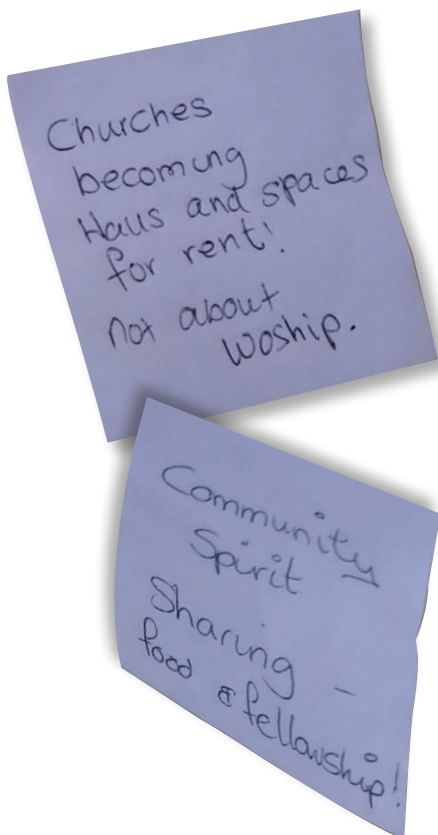 Churches
becoming
Halls and spaces
for rent!
not about
woship.
Community
Spirit
Sharing -
food & fellowship!